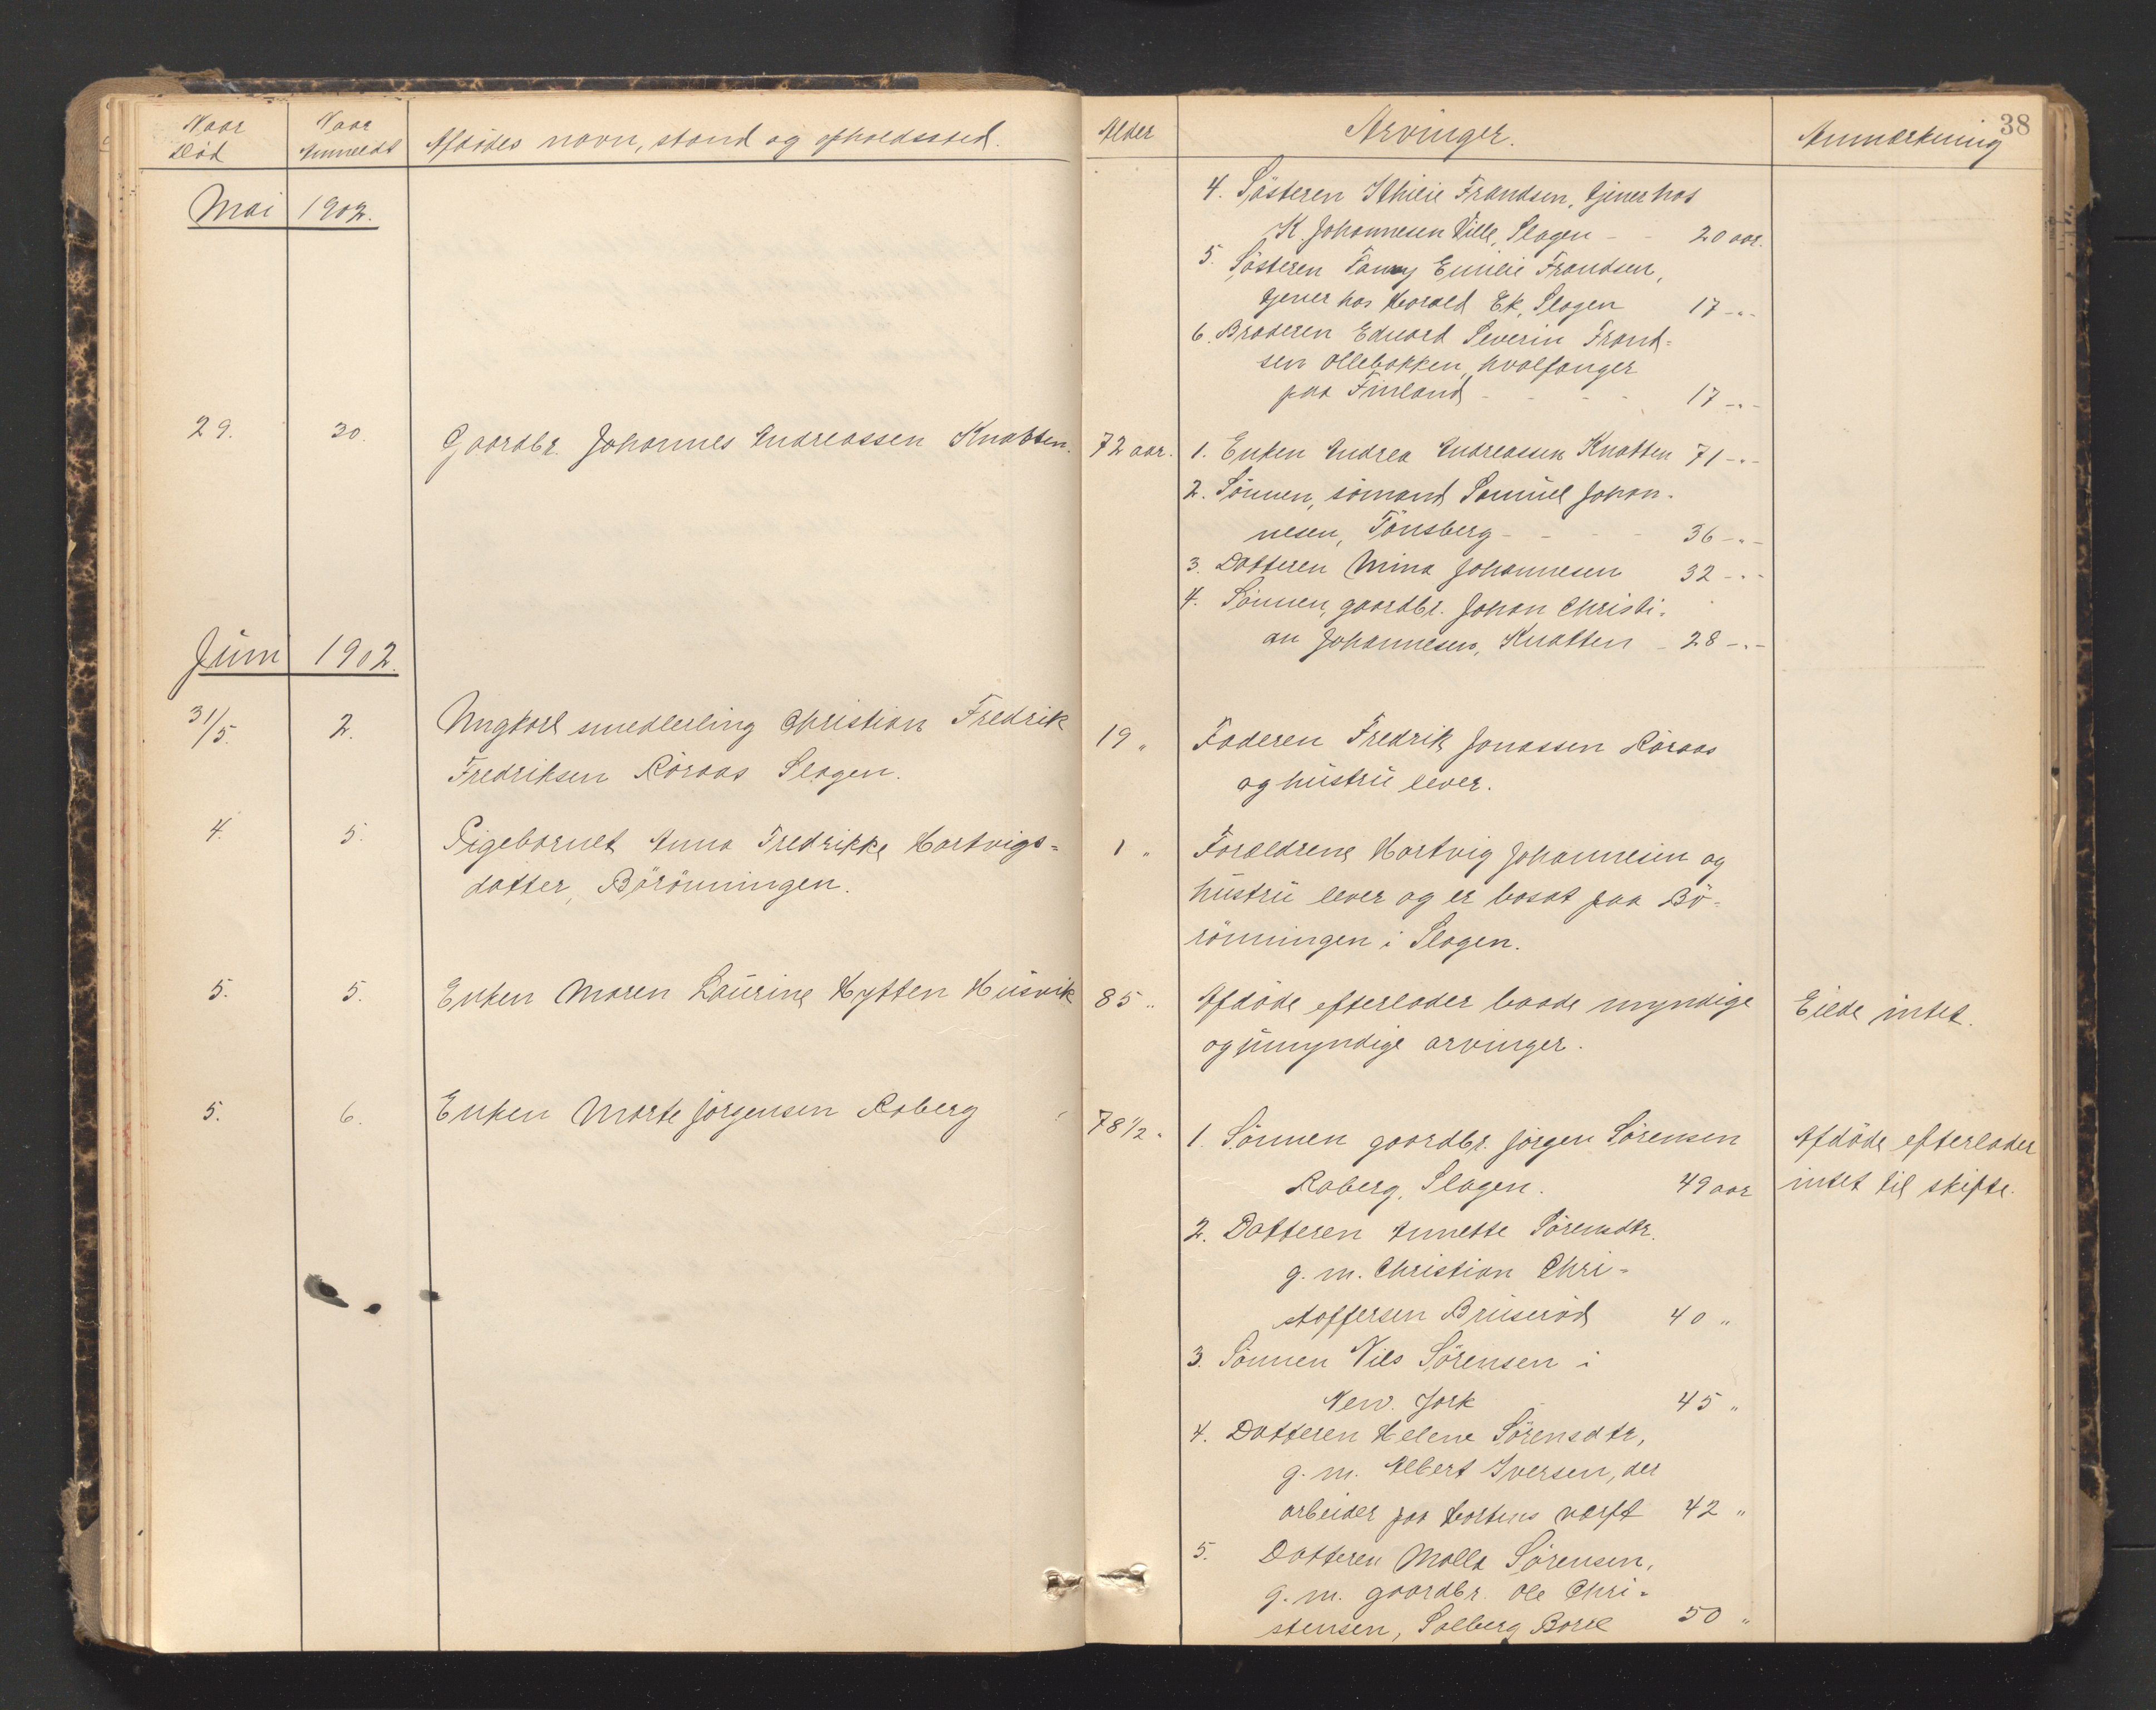 38
Naar Død
Naar Anmeldt
Afdødes navn, stand og opholdssted.
Alder
Arvinger.
Anmærkning
Mai 1902.
4. Søsteren Thilie Frandsen, tjener hos
K. Johannesen Ville, Slagen - - 20 aar.
5. Søsteren Fanny Emilie Frandsen,
tjener hos Harald Ek, Slagen 17 -„-
6. Broderen Edvard Severin Frand=
sen Ollebakken, hvalfanger
paa Finland - - - 17 -„-
29. 30. Gaardbr. Johannes Andreassen Knatten. 72 aar. 1. Enken Andrea Andreassen Knatten 71 -„-
2. Sønnen, sømand Samuel Johan-
nesen, Tønsberg - - - - 36 -„-
3. Datteren Mina Johannesen 32 -„-
4. Sønnen, gaardbr. Johan Christi-
an Johannesen, Knatten - 28 -„-
Juni 1902.
31/5. 2. Ungkarl smedlerling Christian Fredrik 19 „ Faderen Fredrik Jonassen Røraas
Fredriksen Røraas Slagen. og hustru lever.
4. 5. Pigebarnet Anna Fredrikke Hartvigs= 1 „ Forældrene Hartvig Johannesen og
datter, Børønningen. hustru lever og er bosat paa Bø-
rønningen i Slagen.
5. 5. Enken Maren Laurine Hytten Husvik 85 „ Afdøde efterlader baade myndige Eiede intet.
og umyndige arvinger.
5. 6. Enken Marte Jørgensen Roberg 78 1/2 „ 1. Sønnen gaardbr. Jørgen Sørensen Afdøde efterlader
Roberg, Slagen. 49 aar intet til skifte.
2. Datteren Annette Sørensdtr.
g. m. Christian Chri-
stoffersen Bruserød 40 „
3. Sønnen Nils Sørensen i
New. Jork 45 „
4. Datteren Helene Sørensdtr,
g. m. Albert Iversen, der
arbeider paa Hortens værft 42 „
5. Datteren Malla Sørensen,
g. m. gaardbr. Ole Chri-
stensen, Solberg Borre 50 „